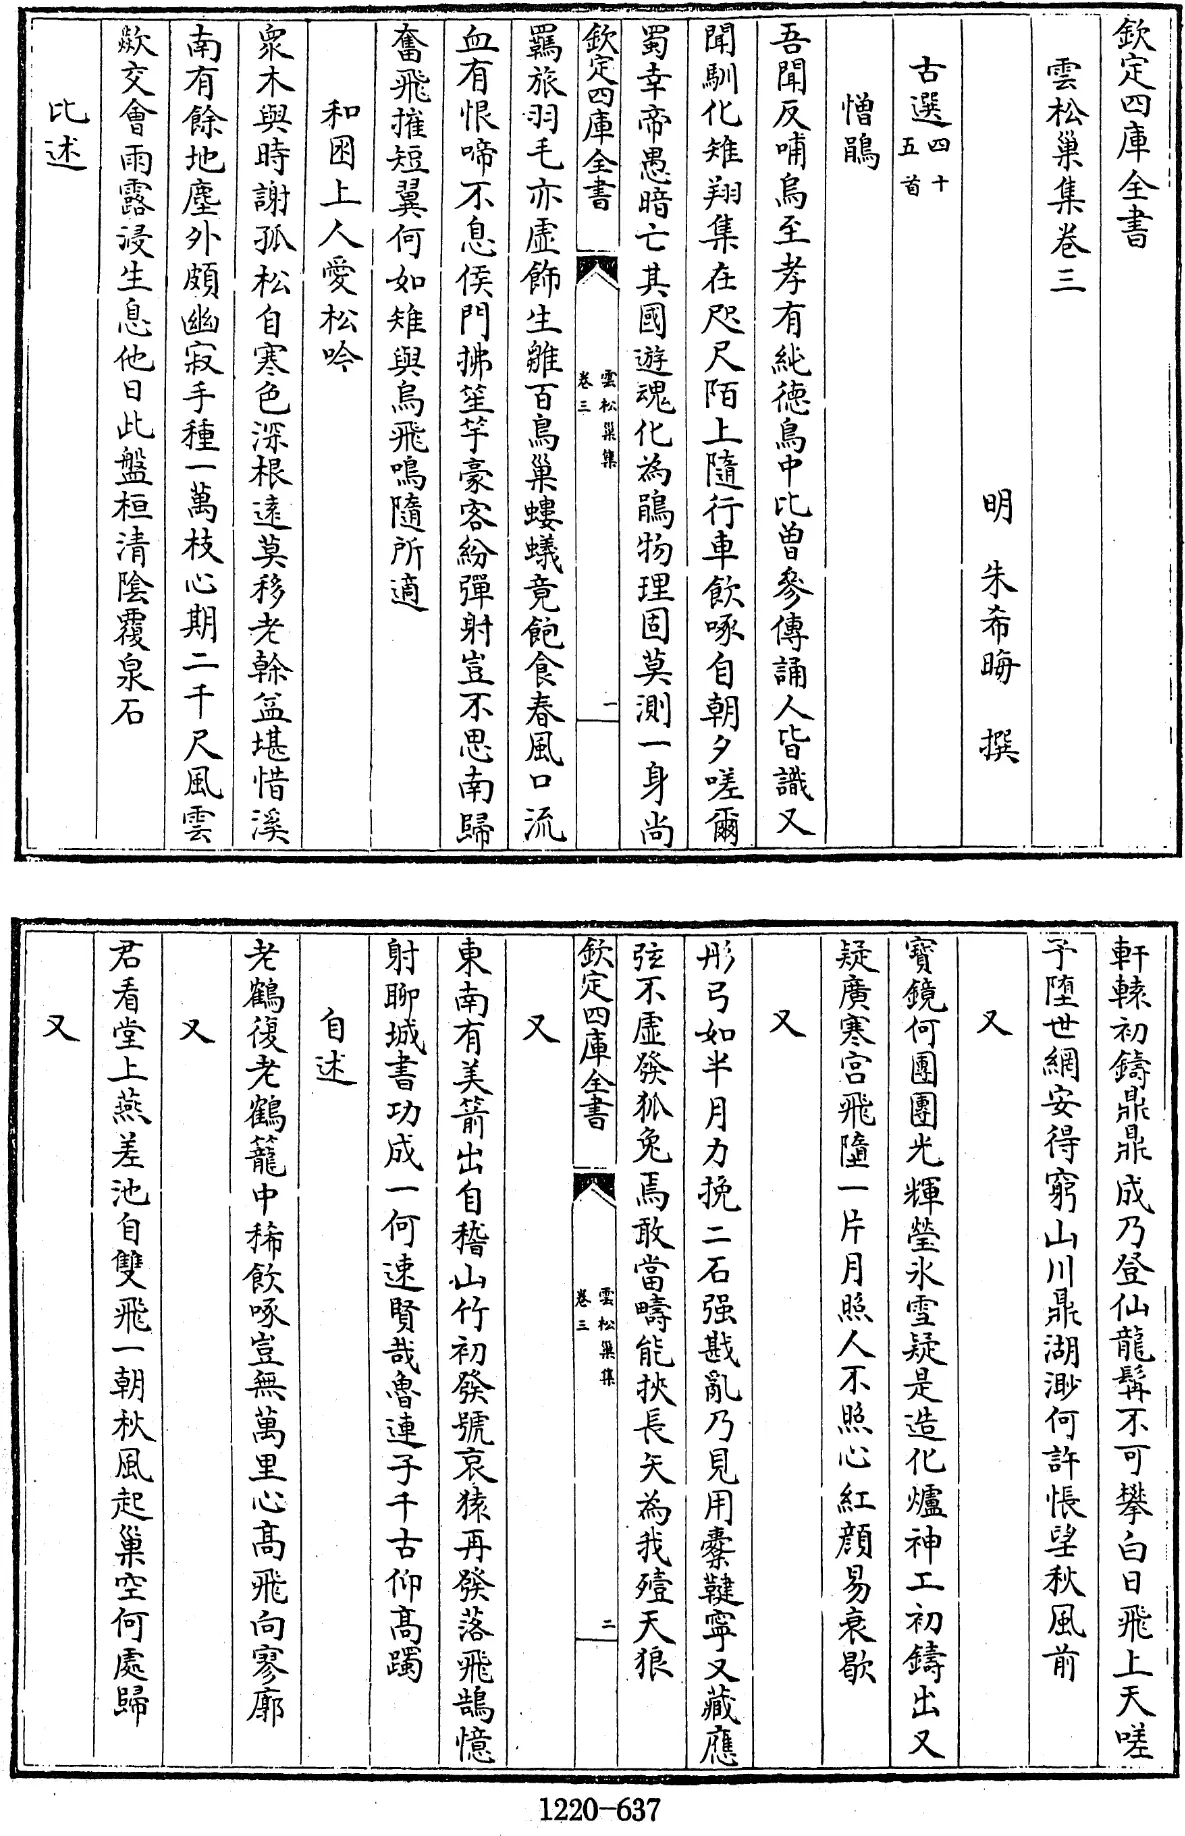 欽定四庫全書
雲松巢集卷三
明　朱希晦　撰
古選四十五首
憎鵑
吾聞反哺烏至孝有純德鳥中比曾參傳誦人皆識又
聞馴化雉翔集在咫尺陌上隨行車飲啄自朝夕嗟爾
蜀幸帝愚暗亡其國遊魂化為鵑物理固莫測一身尚
欽定四庫全書
雲松巢集
卷三
一
羈旅羽毛亦虛飾生雛百鳥巢螻蟻竟飽食春風口流
血有恨啼不息侯門拂笙竽豪客紛彈射豈不思南歸
奮飛摧短翼何如雉與烏飛鳴隨所適
和困上人愛松吟
衆木與時謝孤松自寒色深根遠莫移老榦益堪惜溪
南有餘地塵外頗幽寂手種一萬枝心期二千尺風雲
歘交會雨露浸生息他日此盤桓清陰覆泉石
比述
軒轅初鑄鼎鼎成乃登仙龍髯不可攀白日飛上天嗟
予墮世網安得窮山川鼎湖渺何許悵望秋風前
又
寶鏡何團團光輝瑩氷雪疑是造化爐神工初鑄出又
疑廣寒宮飛墮一片月照人不照心紅顔易衰歇
又
彤弓如半月力挽二石强戡亂乃見用櫜鞬寧又藏應
弦不虛發狐兔焉敢當疇能挾長矢為我殪天狼
欽定四庫全書
雲松巢集
卷三
二
又
東南有美箭出自稽山竹初發號哀猿再發落飛鵠憶
射聊城書功成一何速賢哉魯連子千古仰高躅
自述
老鶴復老鶴籠中稀飲啄豈無萬里心高飛向寥廓
又
君看堂上燕差池自雙飛一朝秋風起巢空何處歸
又
1220-637